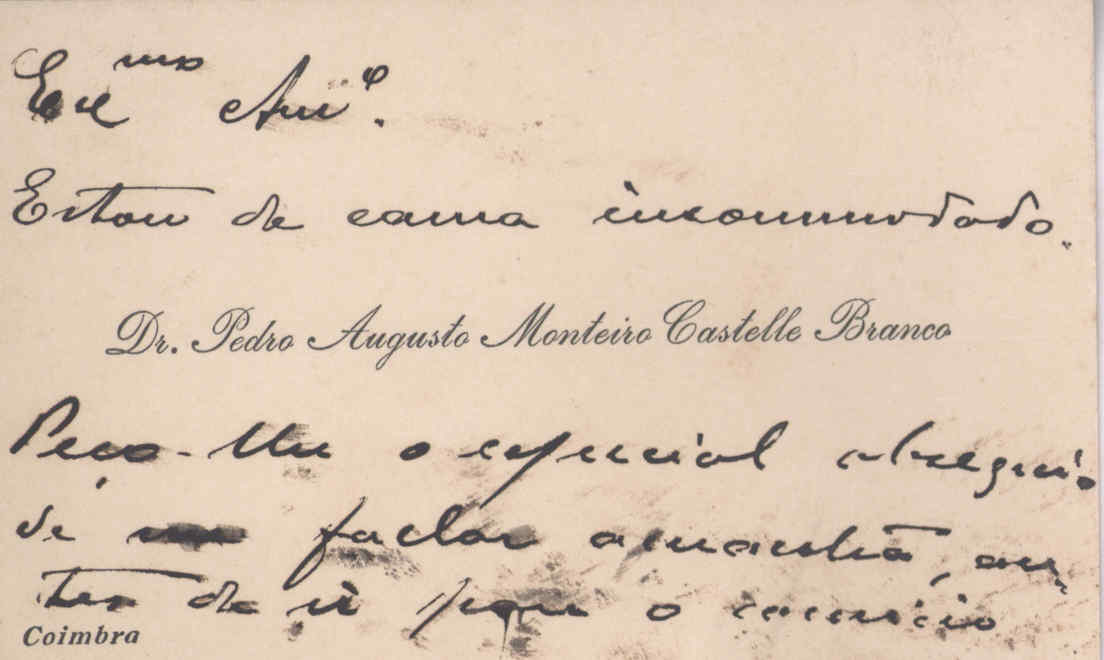 Exmo Amº.
Estou de cama incommodado.
Dr. Pedro Augusto Monteiro Castello Branco
Peço-lhe o especial obsequio
de fallar amanhã, an-
tes de ir para o
Coimbra